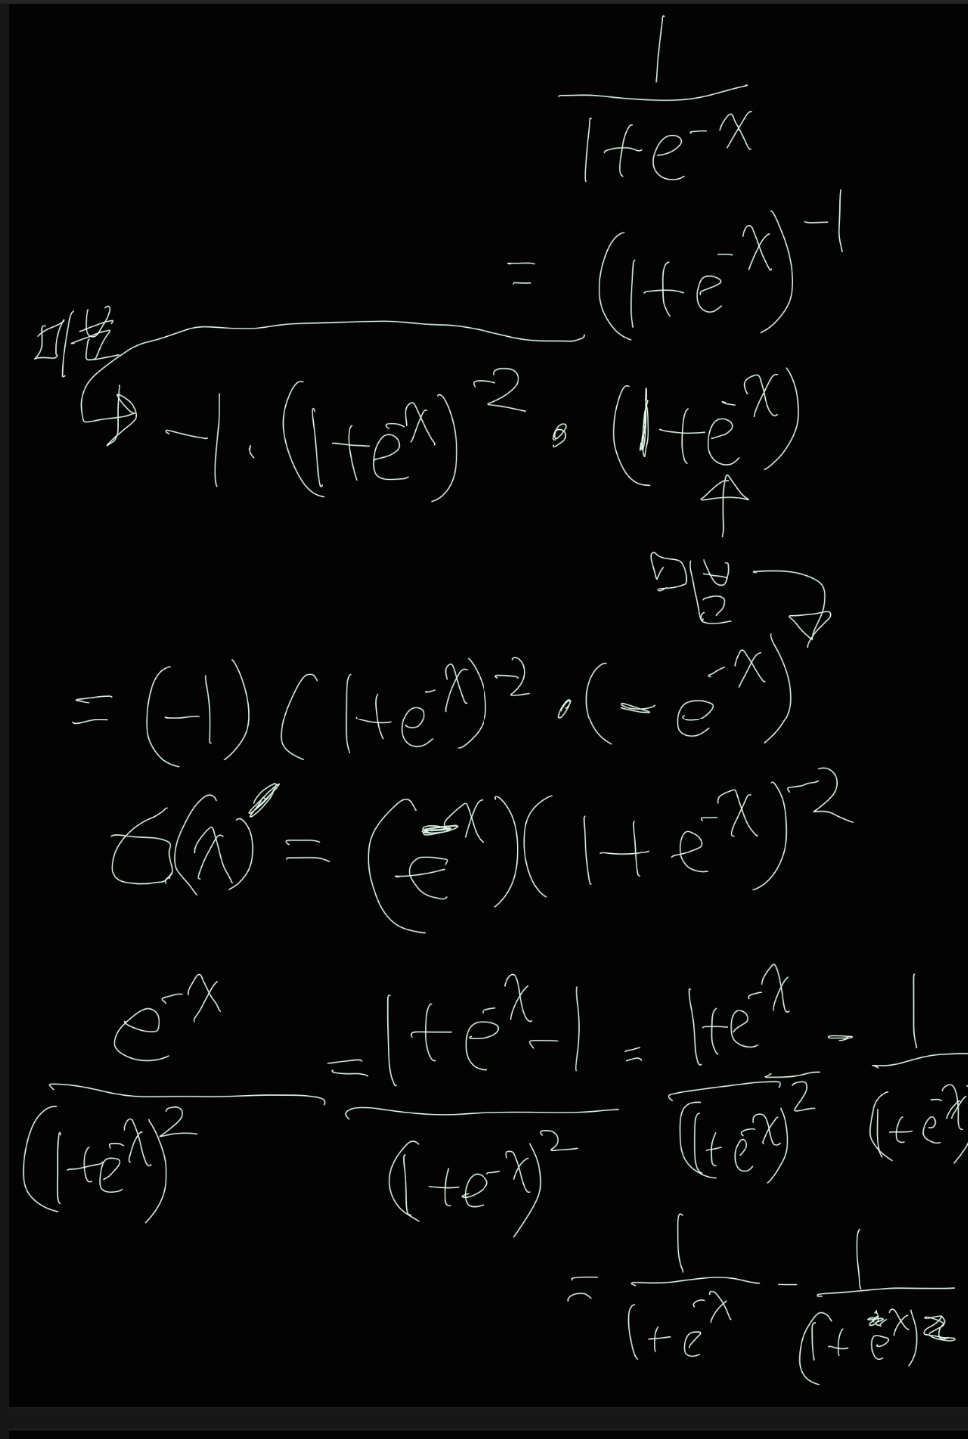 1/(1+e^-x)
= (1+e^-x)^-1
미분
-1 · (1+e^-x)^-2 · (1+e^-x)
미분
= (-1) (1+e^-x)^-2 · (-e^-x)
σ(x)' = (e^-x)(1+e^-x)^-2
e^-x/(1+e^-x)^2 = (1+e^-x-1)/(1+e^-x)^2 = (1+e^-x)/(1+e^-x)^2 - 1/(1+e^-x
= 1/(1+e^-x) - 1/(1+e^-x)^2